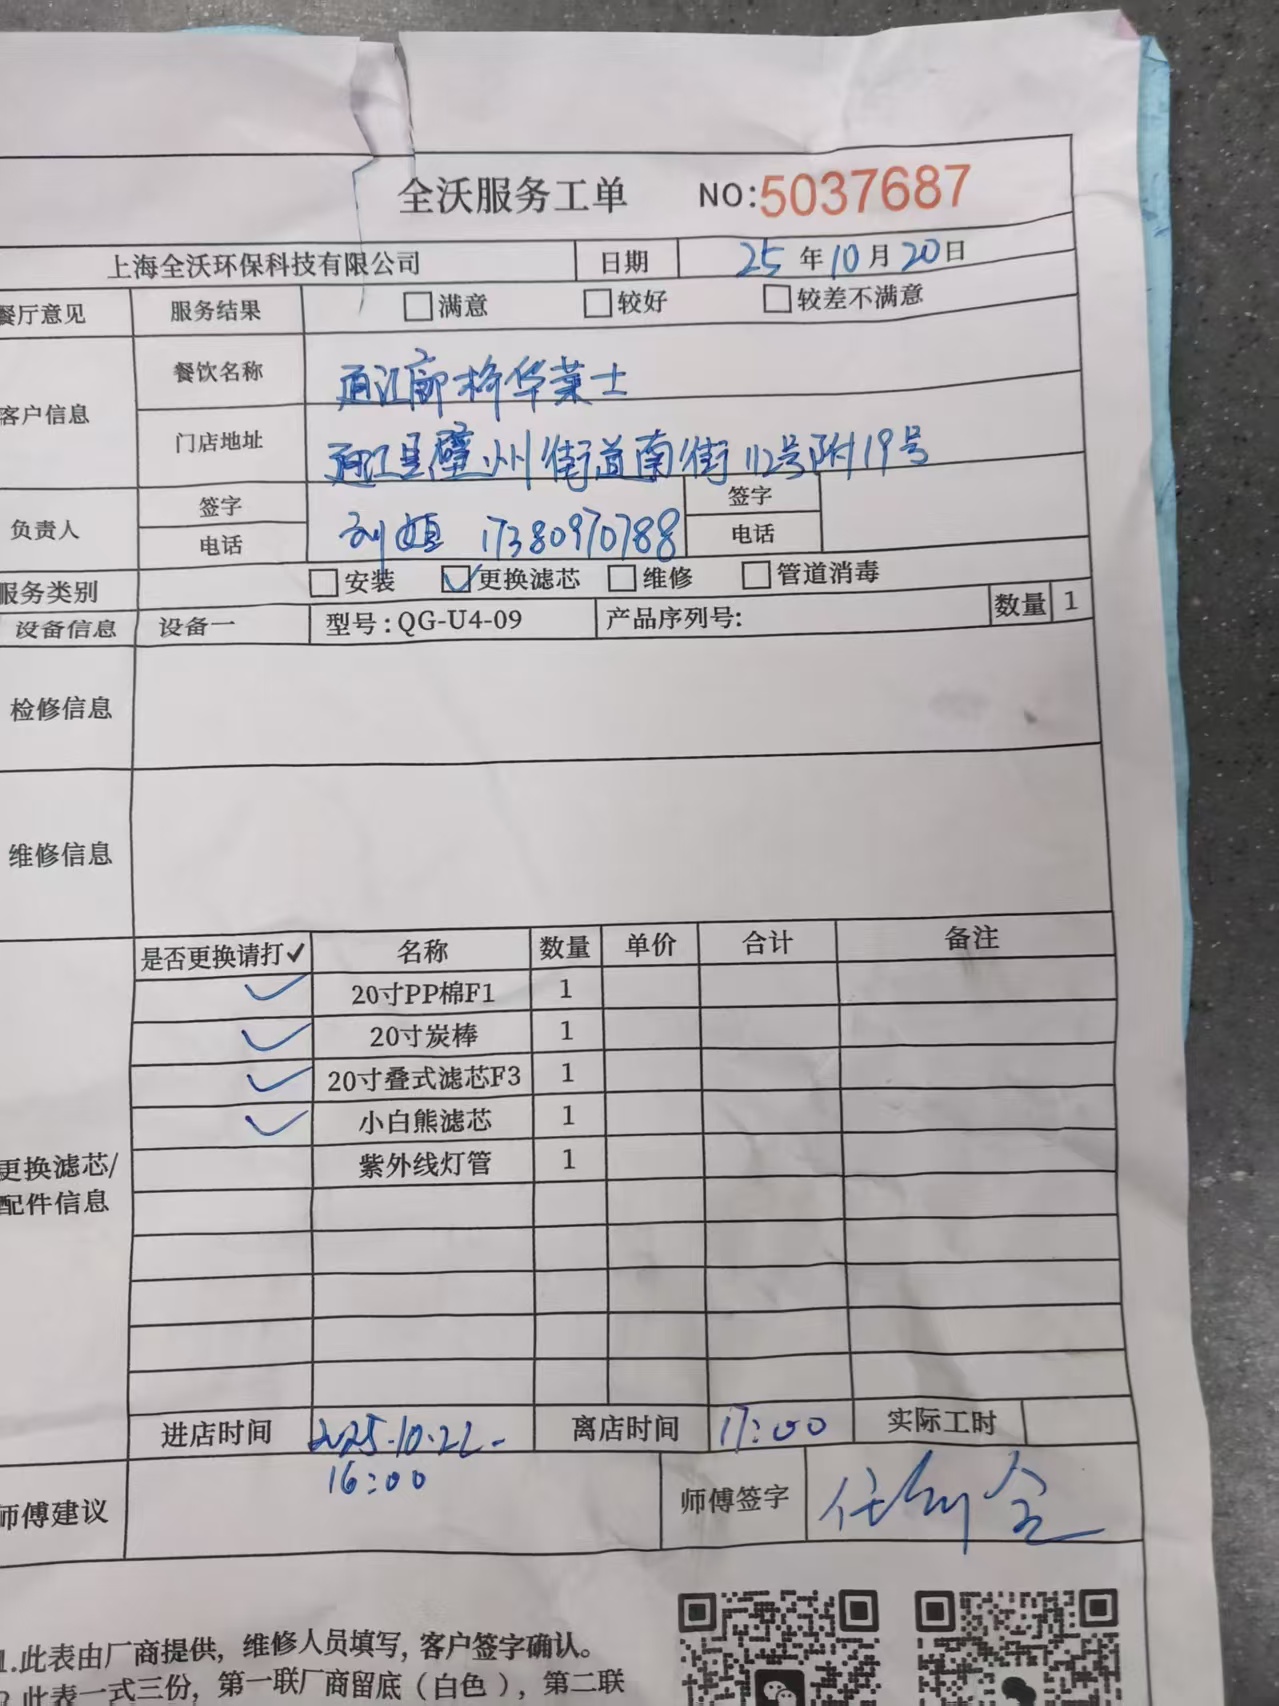 全沃服务工单 NO:5037687
上海全沃环保科技有限公司 日期 25年10月20日
餐厅意见 服务结果 □满意 □较好 □较差不满意
客户信息 餐饮名称 通江廊桥华莱士
门店地址 通江县壁州街道南街112号附19号
负责人 签字 电话 刘 17380970788 签字 电话
服务类别 □安装 ☑更换滤芯 □维修 □管道消毒
设备信息 设备一 型号:QG-U4-09 产品序列号: 数量 1
检修信息
维修信息
更换滤芯/配件信息
是否更换请打✓ 名称 数量 单价 合计 备注
✓ 20寸PP棉F1 1
✓ 20寸炭棒 1
✓ 20寸叠式滤芯F3 1
✓ 小白熊滤芯 1
紫外线灯管 1
进店时间 2025.10.22. 离店时间 17:00 实际工时
16:00
师傅建议 师傅签字
1.此表由厂商提供,维修人员填写,客户签字确认。
2.此表一式三份,第一联厂商留底(白色),第二联